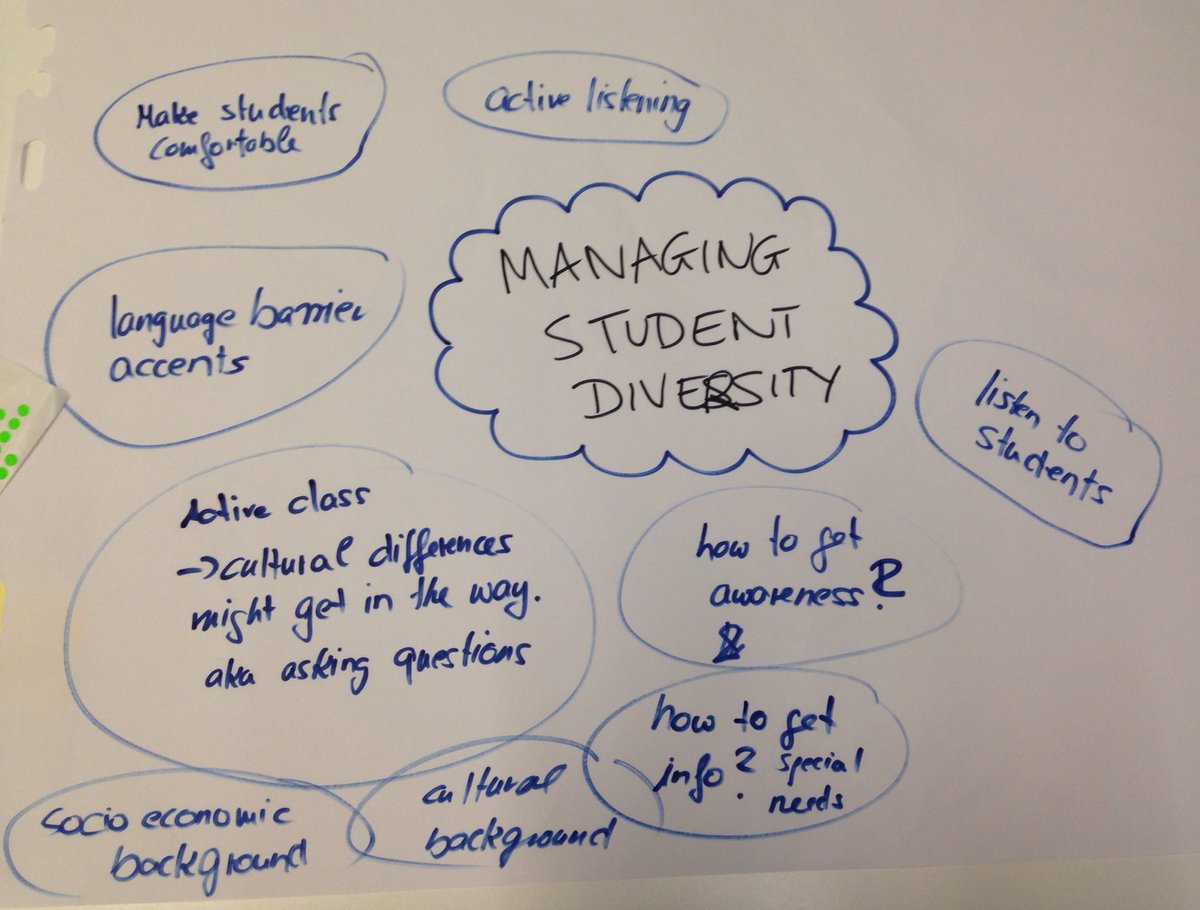 Make students
comfortable
active listening
MANAGING
STUDENT
DIVERSITY
language barrier
accents
listen to
students
Active class
→cultural differences
might get in the way.
aka asking questions
how to get
awareness?
how to get
info? special
needs
socio economic
background
cultural
background